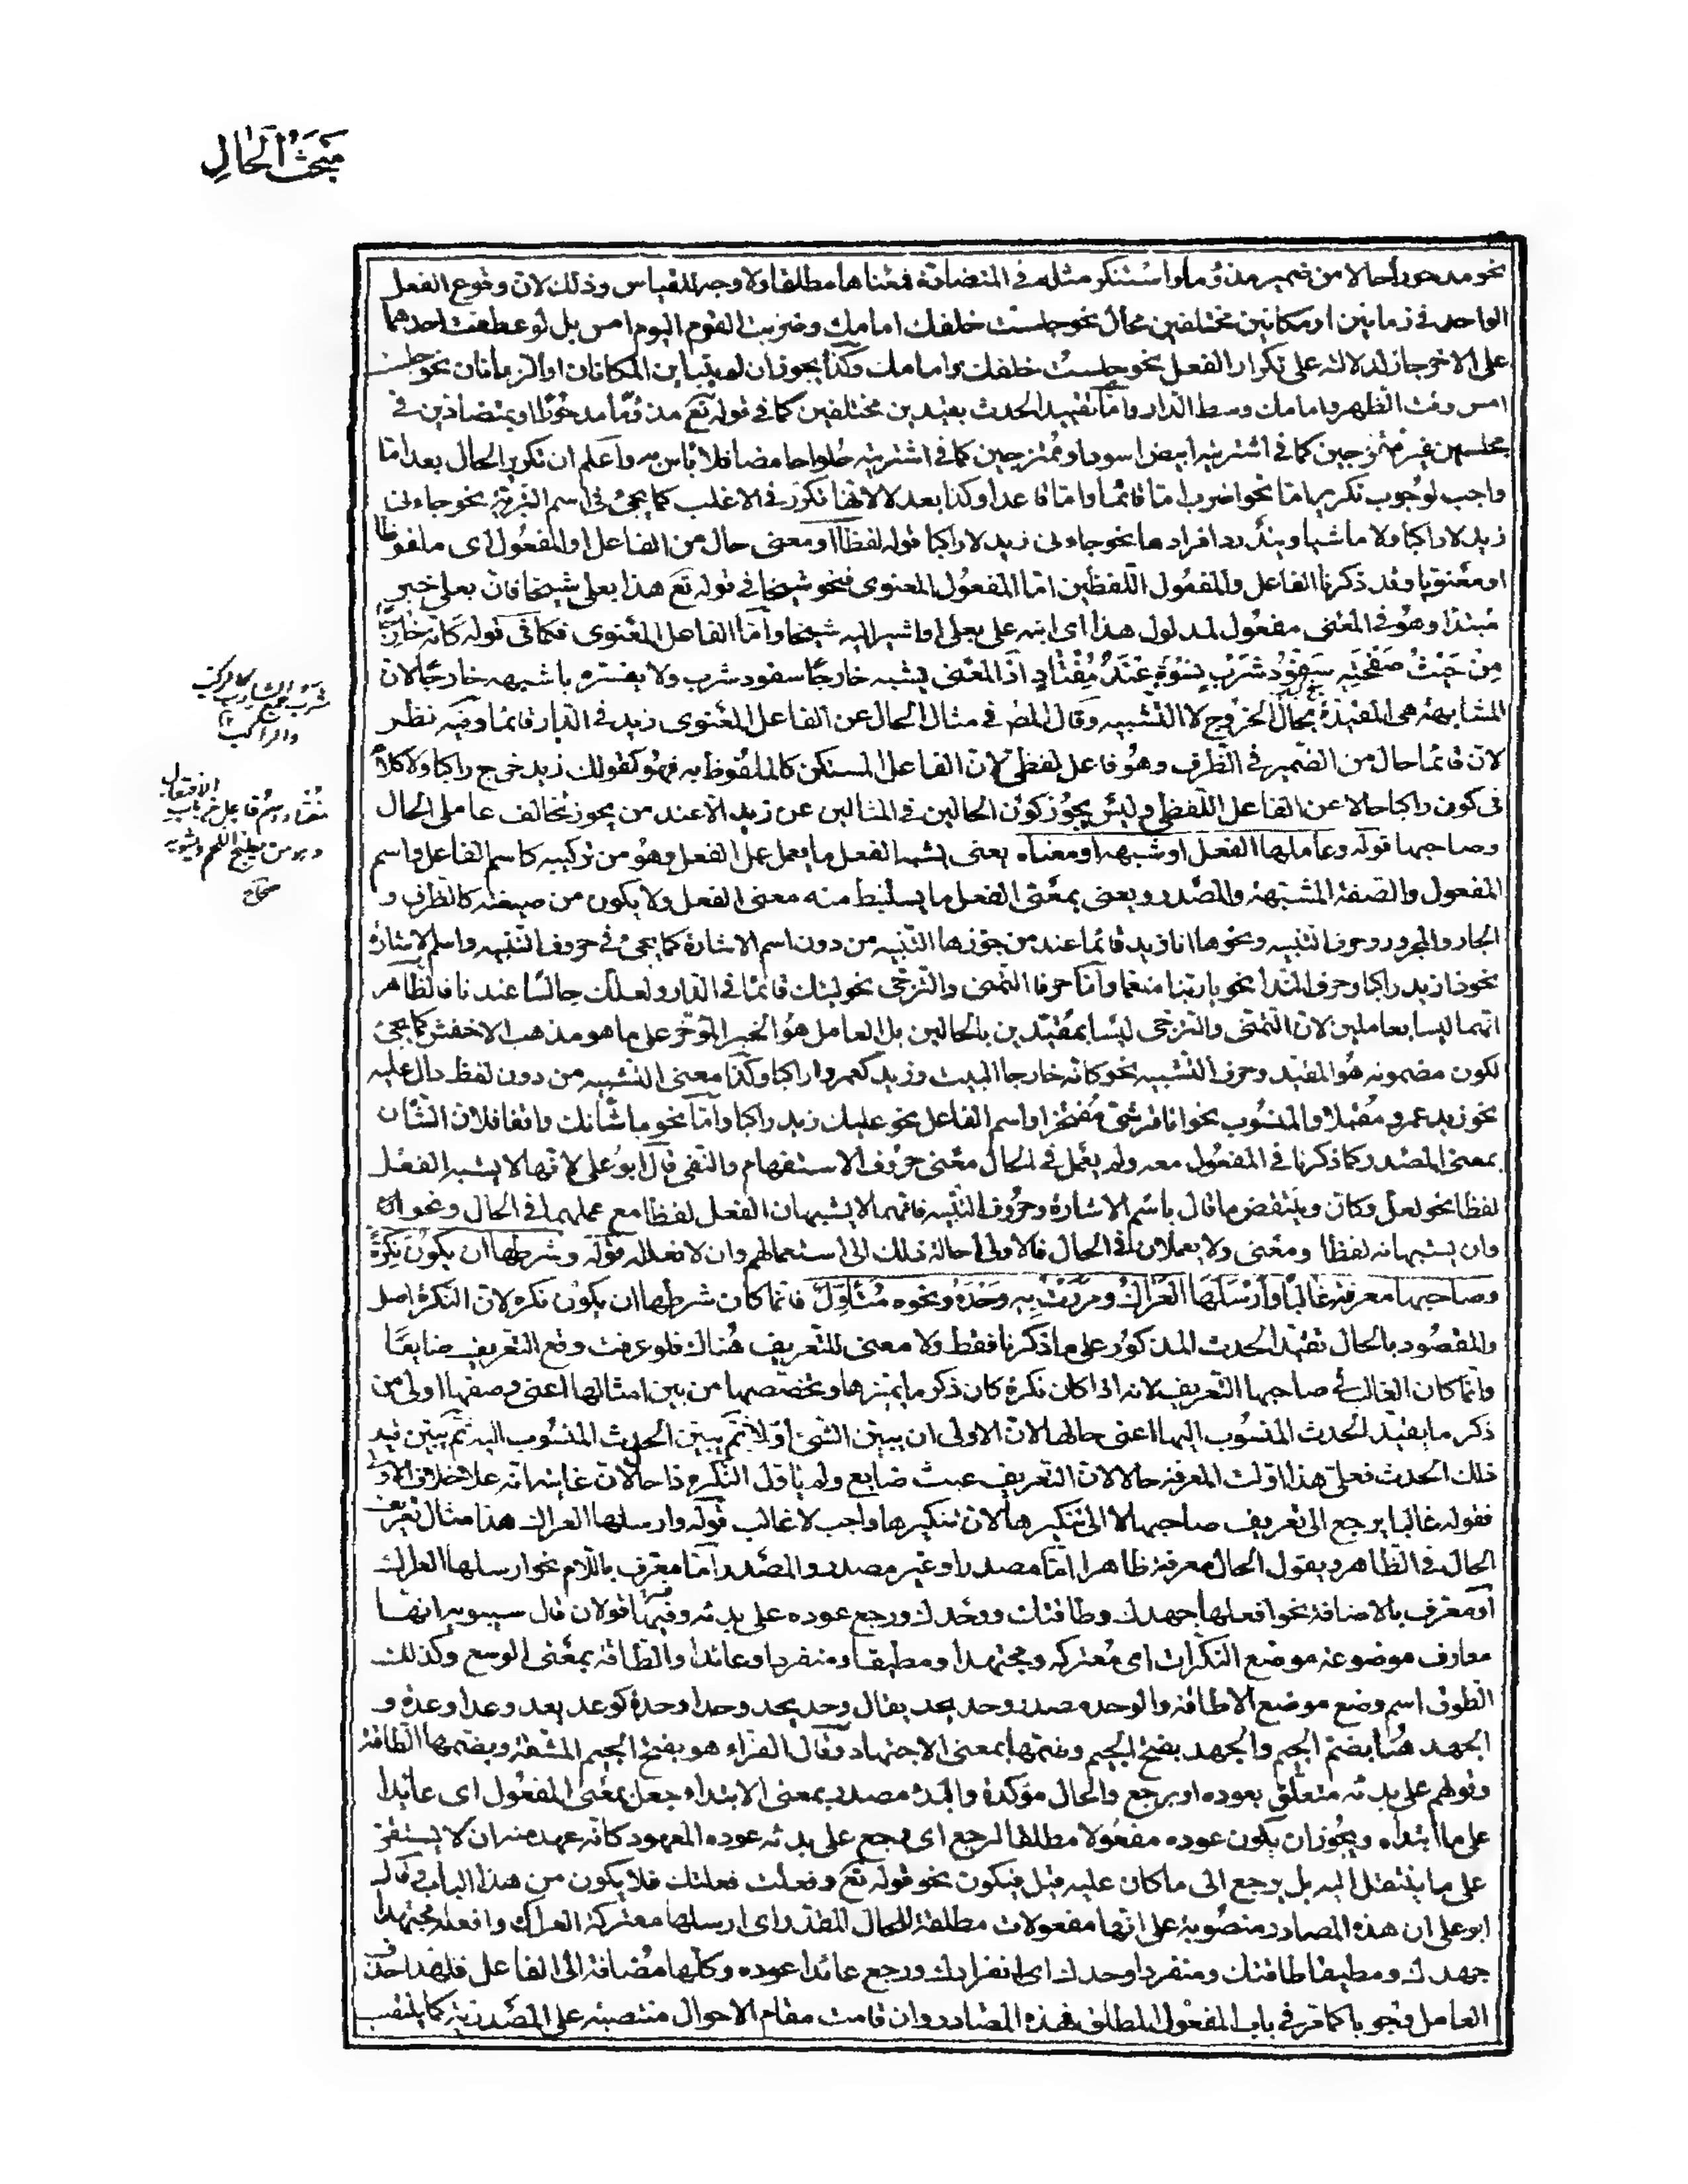 مَبحَثُ الحَالِ
نحو مدحورا حالا من ضمير مذؤما واستنكر مثله في المتضادة فمنعناها مطلقا ولا وجه للقياس وذلك لان وقوع الفعل
الواحد في زمانين او مكانين مختلفين محال نحو جلست خلفك امامك وضربت القوم اليوم امس بل لو عطفت احدهما
على الاخر جاز لدلالته على تكرار الفعل نحو جلست خلفك وامامك وكذا يجوز ان لم يتباين المكانان او الزمانان نحو جلست
امس وقت الظهر وامامك وسط الدار واما تقييد الحدث بقيدين مختلفين كما في قوله تع مذؤما مدحورا او بمتضادين في
محلين غير ممتزجين كما في اشتريته ابيض اسود او ممتزجين كما في اشتريته حلوا حامضا فلا باس به واعلم ان تكرير الحال بعد اما
واجب لوجوب تكريرها اما نحو اضرب اما قائما واما قاعدا وكذا بعد لا لانها تكرر في الاغلب كما يجئ في اسم التبرئة نحو جاءنى
زيد لا راكبا ولا ماشيا ويندر افرادها نحو جاءنى زيد لا راكبا قوله لفظا او معنى حال من الفاعل او المفعول اى ملفوظا
او معنويا وقد ذكرنا الفاعل والمفعول اللفظين اما المفعول المعنوى فنحو شيخا في قوله تع هذا بعلى شيخا فان بعلى خبر
مبتدا وهو في المعنى مفعول لمدلول هذا اى انبه على بعلى او اشير اليه شيخا واما الفاعل المعنوى فكما في قوله كانه خارجا
مِن جَنْبُ صَفْحَتِهِ سَفّودُ شَرْبٍ نَسُوهُ عِنْدَ مُفْتَأَدِ اذ المعنى يشبه خارجا سفود شرب ولا يفسره باشبهه خارجا لان
المشابهة هى المقيدة بحال الخروج لا التشبيه وقال المص في مثال الحال عن الفاعل المعنوى زيد في الدار قائما وفيه نظر
لان قائما حال من الضمير في الظرف وهو فاعل لفظى لان الفاعل المستكن كالملفوظ به فهو كقولك زيد خرج راكبا ولا كلام
في كون راكبا حالا عن الفاعل اللفظى وليس يجوز كون الحالين في المثالين عن زيد الا عند من يجوز تخالف عاملى الحال
وصاحبها قوله وعاملها الفعل او شبهه او معناه يعنى بشبه الفعل ما يعمل عمل الفعل وهو من تركيبه كاسم الفاعل واسم
المفعول والصفة المشبهة والمصدر ويعنى بمعنى الفعل ما يستنبط منه معنى الفعل ولا يكون من صيغته كالظرف و
الجار والمجرور وحرف التنبيه ونحو ها انا زيد قائما عند من جوز ها التنبيه من دون اسم الاشارة كما يجئ في حروف التنبيه واسم الاشارة
نحو ذا زيد راكبا وحرف النداء نحو يا ربنا منعما واما حرفا التمنى والترجى نحو ليتك قائما في الدار ولعلك جالسا عندنا فالظاهر
انهما ليسا بعاملين لان التمنى والترجى ليسا بمقيدين بالحالين بل العامل هو الخبر المؤخر على ما هو مذهب الاخفش كما يجئ
لكون مضمونه هو المقيد وحرف التشبيه نحو كانه خارجا البيت وزيد كعمرو راكبا وكذا معنى التشبيه من دون لفظ دال عليه
نحو زيد عمرو مقبلا والمنسوب نحو انا قرشى مفتخرا واسم الفاعل نحو عليك زيد راكبا واما نحو ما شأنك واقفا فلان الشأن
بمعنى المصدر كما ذكرنا في المفعول معه ولم يعمل في الحال معنى حروف الاستفهام والنفى قال ابو على لانها لا يشبه الفعل
لفظا نحو لعل وكان وينتقض ما قال باسم الاشارة وحروف التنبيه فانهما لا يشبهان الفعل لفظا مع عملهما في الحال ونحو ان
وان يشبهانه لفظا ومعنى ولا يعملان في الحال فالاولى احالة ذلك الى استعمالهم وان لا نعلله قوله وشرطها ان يكون نكرة
وصاحبها معرفة غالبا وَأَرْسَلَهَا العِرَاكَ ومررت به وَحْدَهُ ونحوه مُتَأَوَّلٌ فانما كان شرطها ان يكون نكرة لان النكرة اصل
والمقصود بالحال تقيد الحدث المذكور على ما ذكرنا فقط ولا معنى للتعريف هناك فلو عرفت وقع التعريف ضايعا
وانما كان الغالب في صاحبها التعريف لانه اذا كان نكرة كان ذكر ما يميزها وتخصصها من بين امثالها اعنى وصفها اولى من
ذكر ما يقيد الحدث المنسوب اليها اعنى حالها لان الاولى ان يبين الشئ اولا ثم يبين الحدث المنسوب اليه ثم يبين قيد
ذلك الحدث فعلى هذا اولت المعرفة حالا لان التعريف عبث ضايع ولم ياول النكرة ذا حال لان غايته انه على خلاف الاولى
فقوله غالبا يرجع الى تعريف صاحبها لا الى تنكيرها لان تنكيرها واجب لا غالب قوله وارسلها العراك هذا مثال تعريف
الحال في الظاهر ويقول الحال معرفة ظاهرا اما مصدرا وغير مصدر والمصدر اما معرف باللام نحو ارسلها العراك
او معرف بالاضافة نحو افعلها جهدك وطاقتك ووحدك ورجع عوده على بدئه وفيها قولان قال سيبويه انها
معارف موضوعة موضع النكرات اى معتركة ومجتهدا ومطيقا ومنفردا وعائدا والطاقة بمعنى الوسع وكذلك
الطوق اسم وضع موضع الاطاقة والوحده مصدر وحد يحد يقال وحد يحد وحدا وحدة كوعد يعد وعدا وعدة و
الجهد هنا بضم الجيم والجهد بفتح الجيم وضمها بمعنى الاجتهاد وقال الفراء هو بفتح الجيم المشقة وبضمها الطاقة
وقولهم على بدئه متعلق بعوده او برجع والحال مؤكدة والبدء مصدر بمعنى الابتداء جعل بمعنى المفعول اى عائدا
على ما ابتداه ويجوز ان يكون عوده مفعولا مطلقا لرجع اى رجع على بدئه عوده المعهود كانه عهد منه ان لا يستقر
على ما ينتقل اليه بل يرجع الى ما كان عليه قبل فيكون نحو قوله تع وفعلت فعلتك فلا يكون من هذا الباب وقال
ابو على ان هذه المصادر منصوبة على انها مفعولات مطلقة للحال المقدر اى ارسلها معتركة العراك وافعله مجتهدا
جهدك ومطيقا طاقتك ومنفردا وحدك اى انفرادك ورجع عائدا عوده وكلها مضافة الى الفاعل فلهذا حذف
العامل وجوبا كما مر في باب المفعول المطلق فهذه المصادر وان قامت مقام الاحوال منتصبة على المصدرية كما ينتصب
شَرْب جمع الشارب كالركب
والراكب
الافتعال
مفتأد اسم فاعل من باب
وهو من يطبخ اللحم ويشويه
صحاح